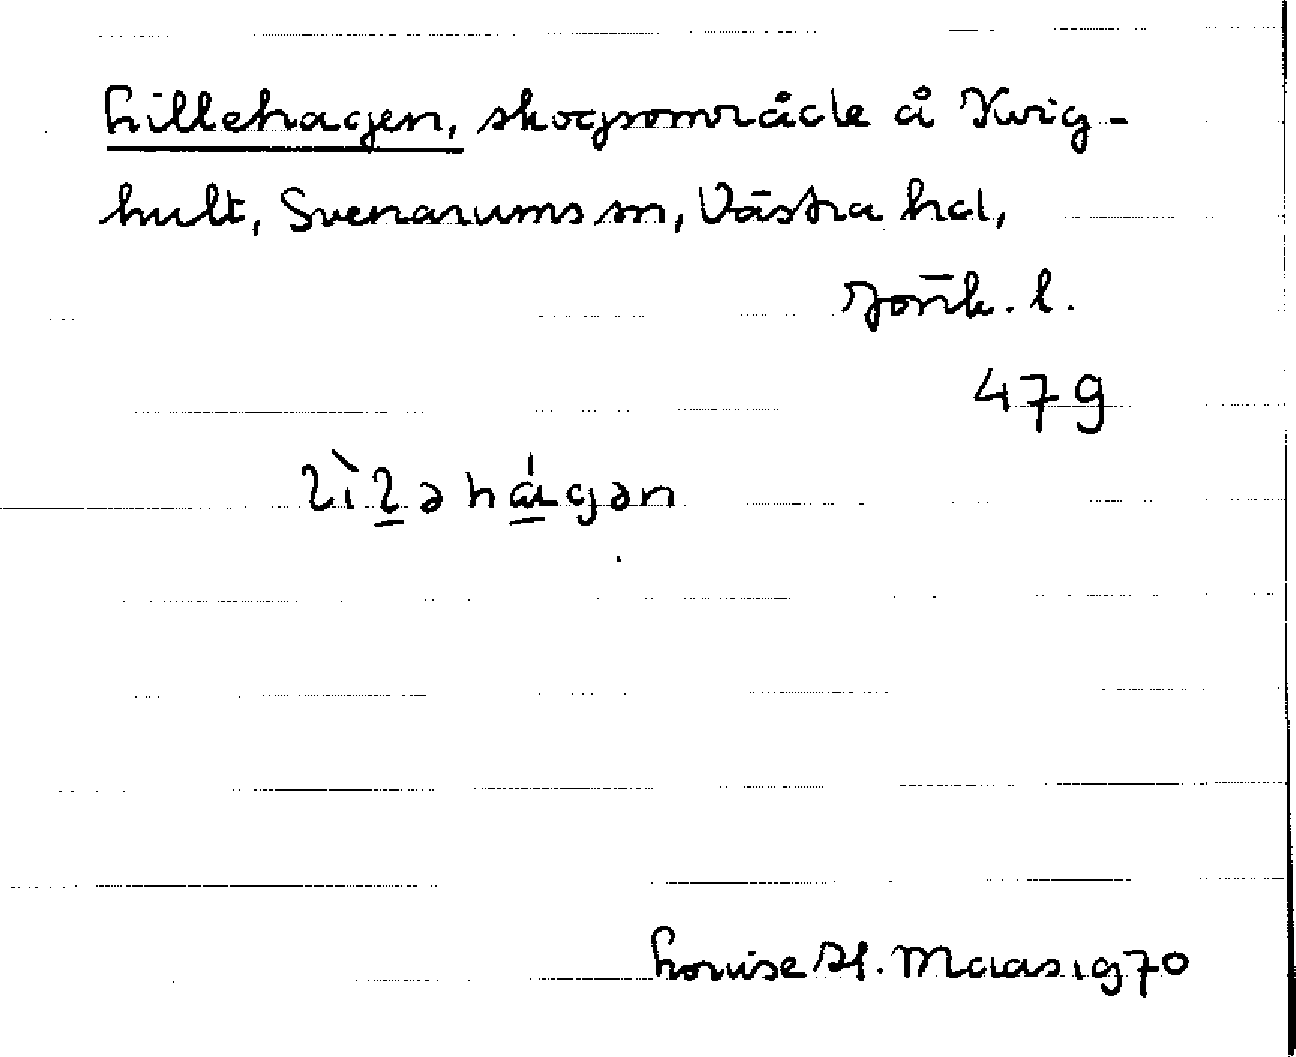 Lillehagen, skogsområde å Kvig-
hult, Svenarums sn, Västra hd,
Jönk. l.
479
lìlə há̱gən
Louise H. Maas 1970